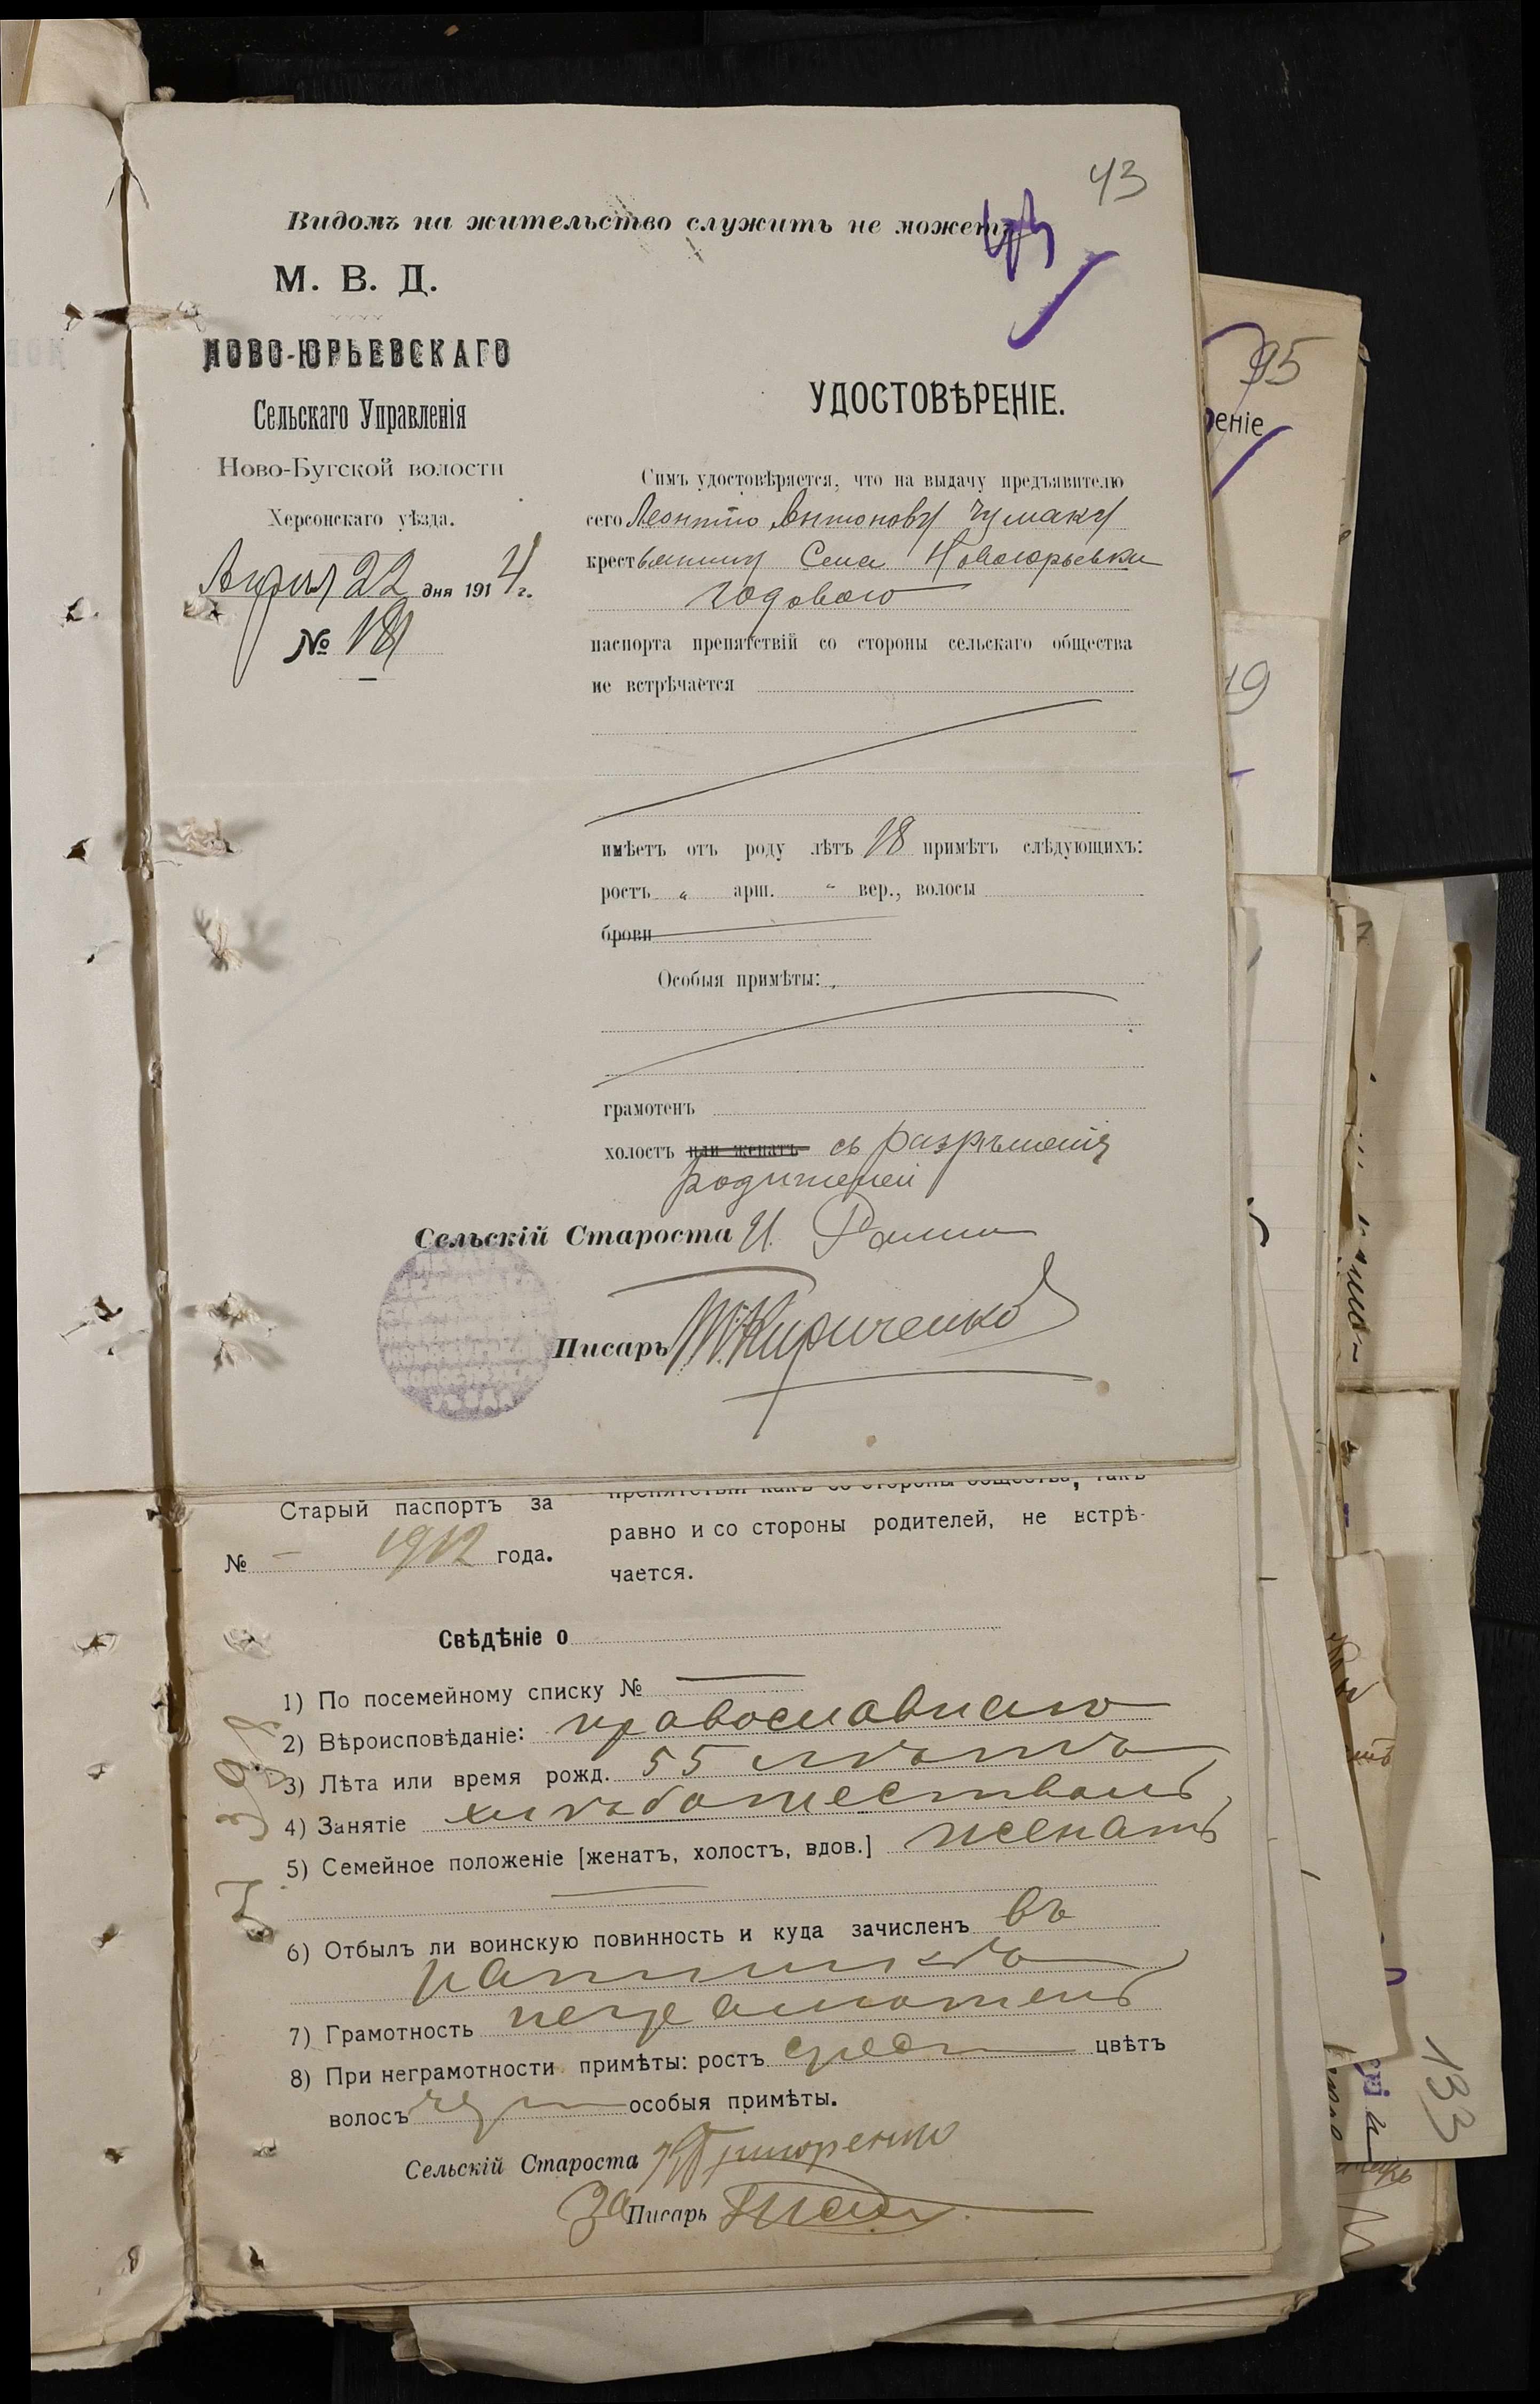 43
Видомъ на жительство служить не можетъ
43
М. В. Д.
НОВО-ЮРЬЕВСКАГО
Сельскаго Управленія
Ново-Бугской волости
Херсонскаго уѣзда.
Апрѣля 22 дня 1914 г.
№ 181
УДОСТОВѢРЕНІЕ.
Симъ удостовѣряется, что на выдачу предъявителю
сего Леонтію Антонову Чумаку
крестьянину Села Новоюрьевки
годового
паспорта препятствій со стороны сельскаго общества
не встрѣчается
имѣетъ отъ роду лѣтъ 18 примѣтъ слѣдующихъ:
ростъ " арш. " вер., волосы
брови
Особыя примѣты:
грамотенъ
холостъ или женатъ съ разрѣшенія
родителей
Сельскій Староста И.
Писарь Кириченко
95
еніе
19
Старый паспортъ за
№ — 1912 года.
препятствій какъ со стороны общества, такъ
равно и со стороны родителей, не встрѣ-
чается.
Свѣдѣніе о
1) По посемейному списку №
2) Вѣроисповѣданіе: православнаго
3) Лѣта или время рожд. 55 лѣтъ
4) Занятіе хлѣбопашествомъ
5) Семейное положеніе [женатъ, холостъ, вдов.] женатъ
6) Отбылъ ли воинскую повинность и куда зачисленъ въ
ратники
7) Грамотность неграмотенъ
8) При неграмотности примѣты: ростъ средн цвѣтъ
волосъ особыя примѣты.
Сельскій Староста Григоренко
За Писарь
133